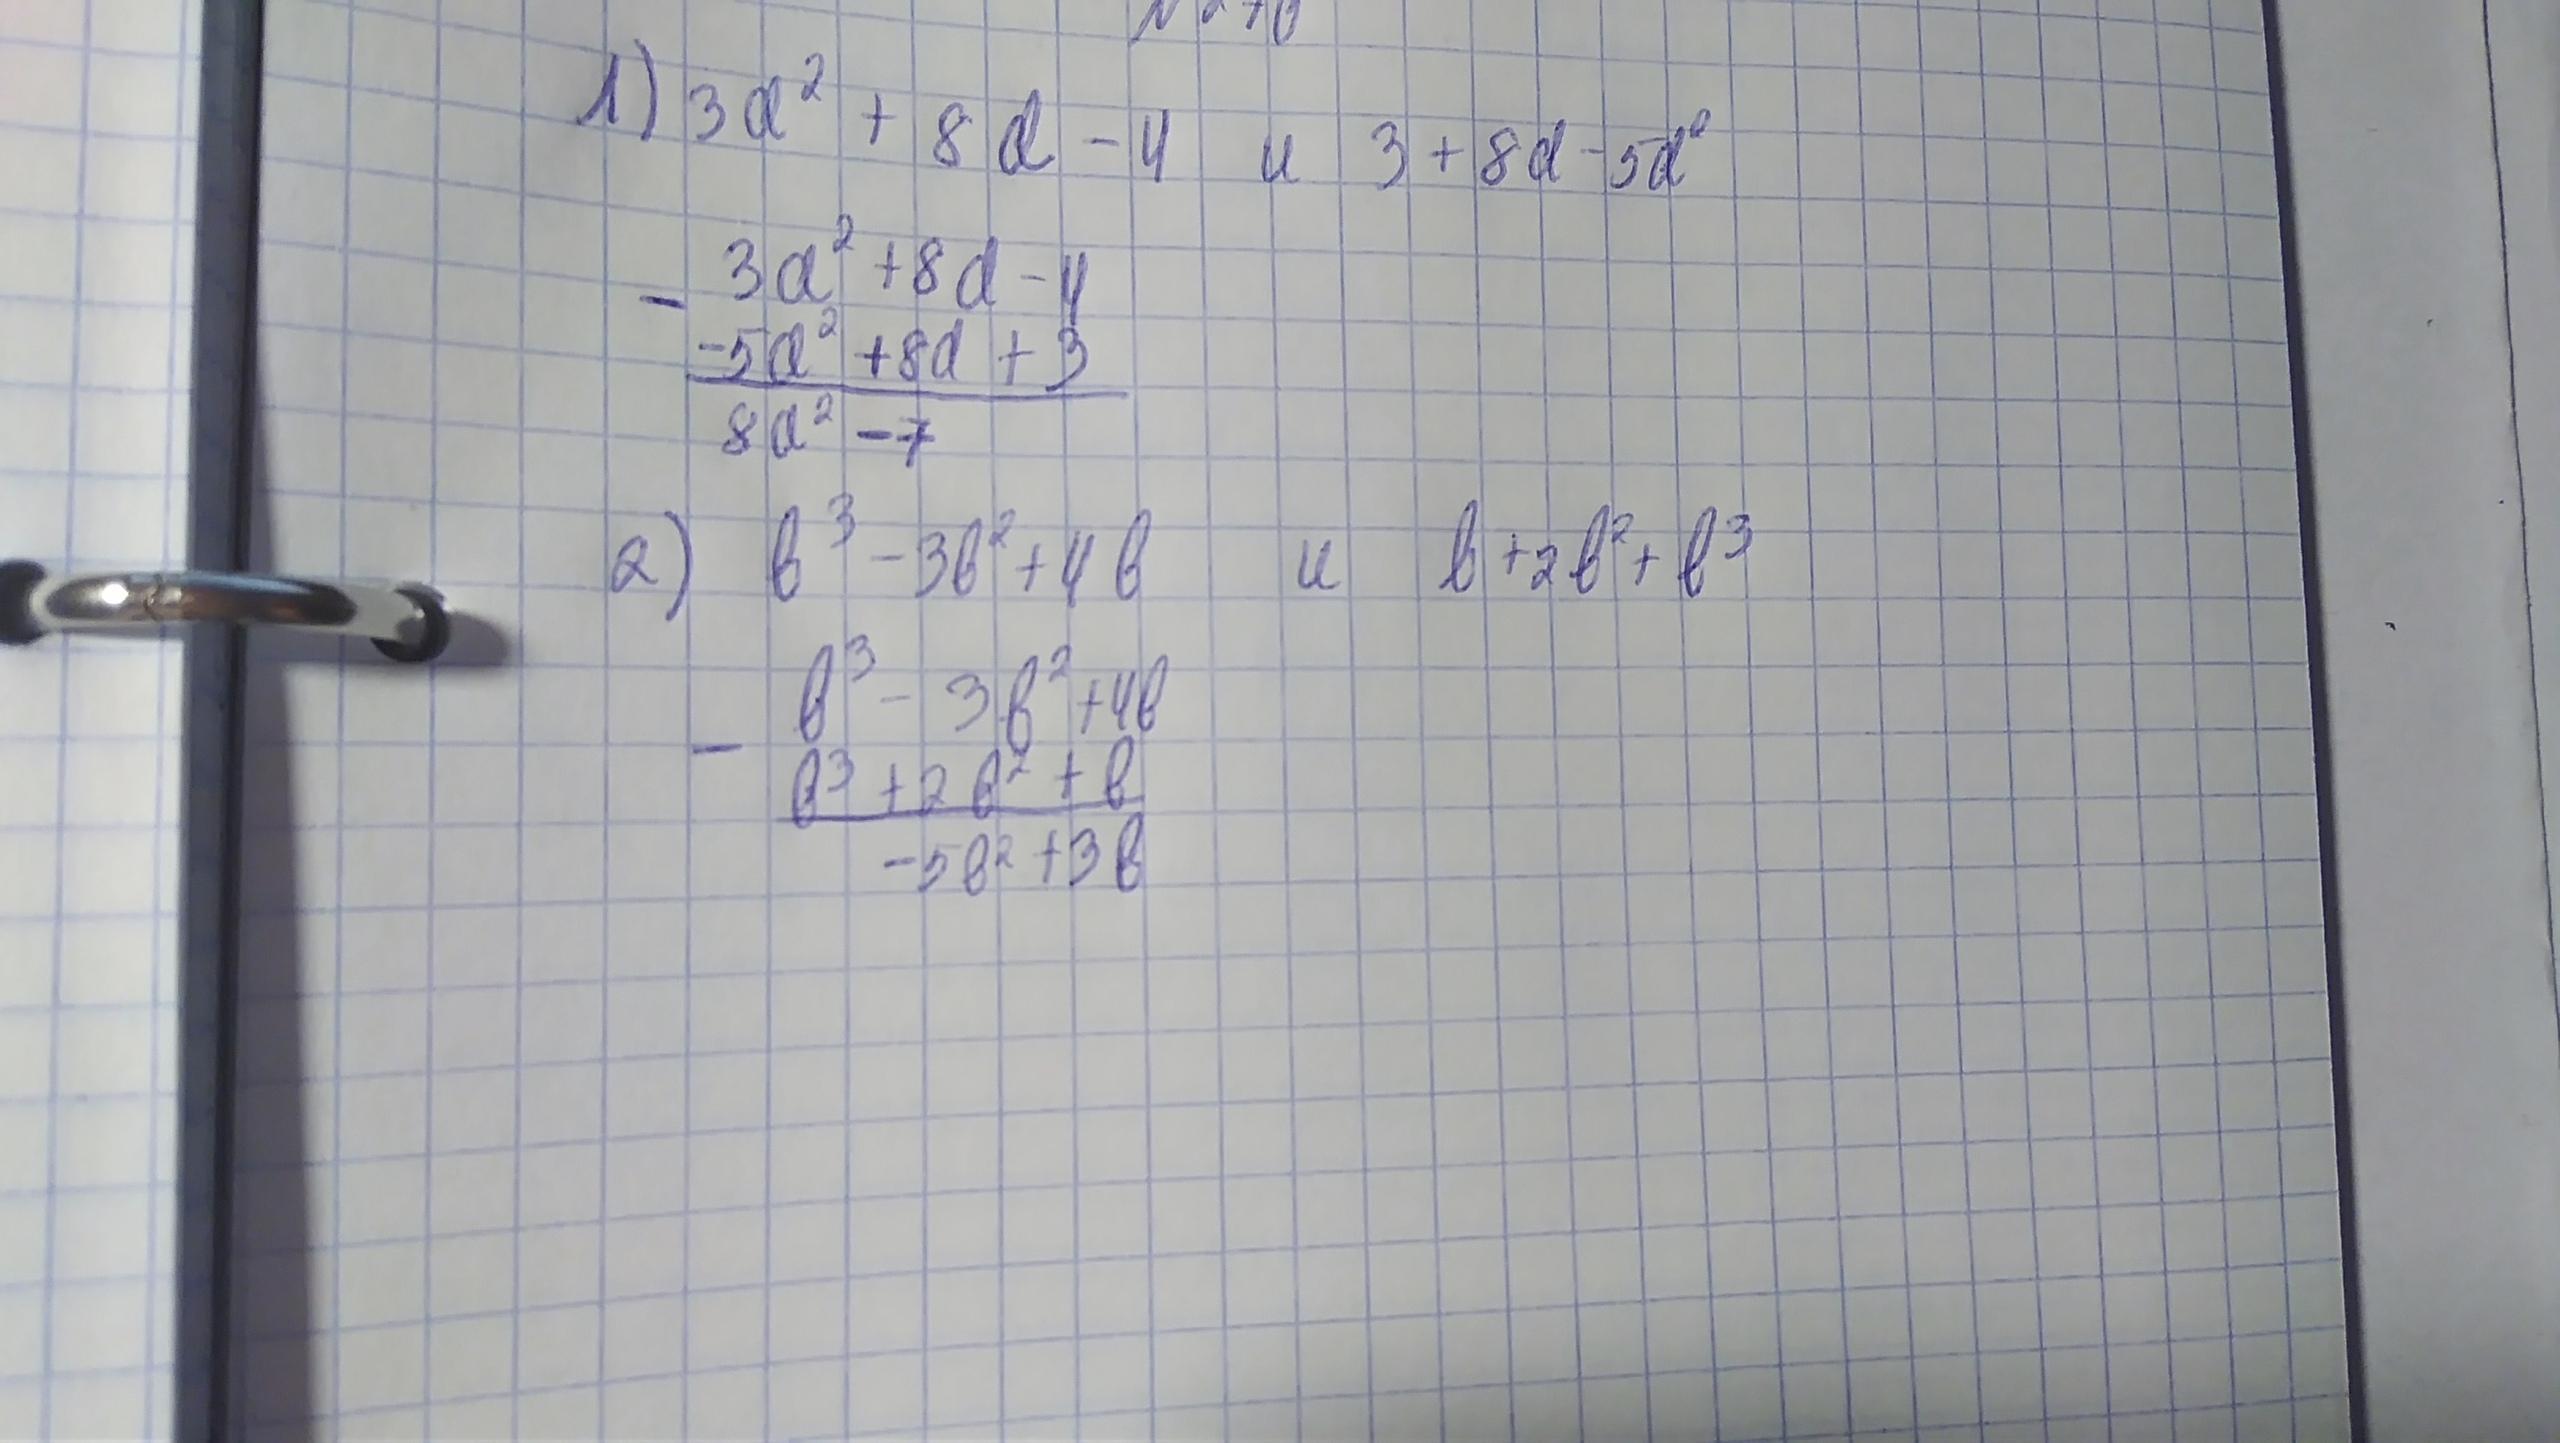 1) 3a² + 8a - 4 и 3 + 8a - 5a²
- 3a² + 8a - 4
-5a² + 8a + 3
8a² - 7
2) b³ - 3b² + 4b и b + 2b² + b³
- b³ - 3b² + 4b
b³ + 2b² + b
-5b² + 3b